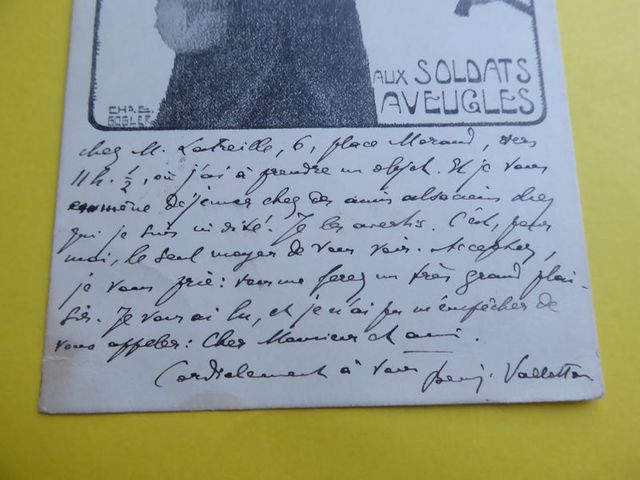 AUX SOLDATS
AVEUGLES
CHS. E.
GOGLER
chez M. Latreille, 6, place Morand, vers
11 h. 1/2, où j'ai à prendre un objet. Et je vous
emmène déjeuner chez des amis alsaciens chez
qui je suis invité. Je les avertis. C'est, pour
moi, le seul moyen de vous voir. Acceptez,
je vous prie: vous me ferez un très grand plai-
sir. Je vous ai lu, et je n'ai pu m'empêcher de
vous appeler: Cher Monsieur et ami.
Cordialement à vous Benj. Vallotton